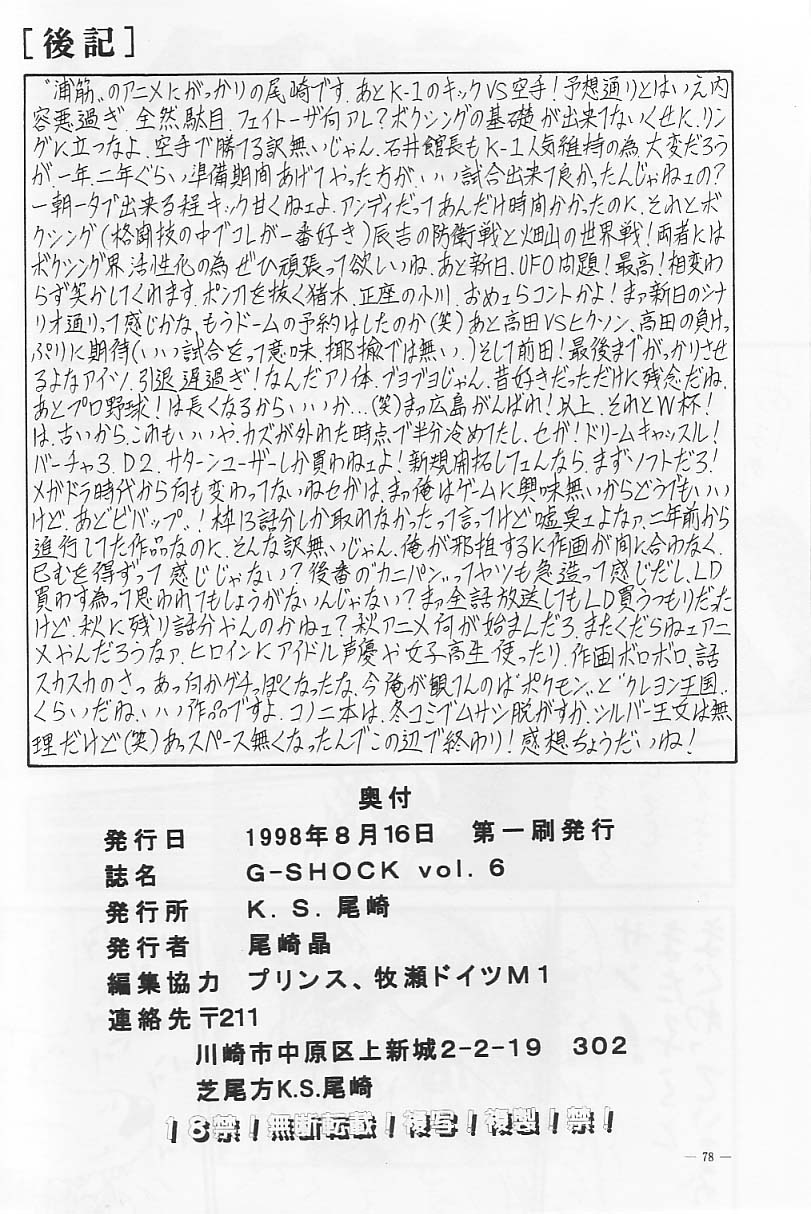 [後記]
“浦筋„のアニメにがっかりの尾崎です.あとK-1のキックVS空手!予想通りとはいえ内
容悪過ぎ.全然駄目.フェイトーザ何アレ?ボクシングの基礎が出来てないくせに.リン
グに立つなよ.空手で勝てる訳無いじゃん.石井館長もK-1人気維持の為.大変だろう
が.一年.二年ぐらい準備期間あげてやった方が.いい試合出来て良かったんじゃねェの?
一朝一夕で出来る程キック甘くねェよ.アンディだってあんだけ時間かかったのに.それとボ
クシング(格闘技の中でコレが一番好き)辰吉の防衛戦と畑山の世界戦!両者には
ボクシング界活性化の為ぜひ頑張って欲しいね.あと新日.UFO問題!最高!相変わ
らず笑かしてくれます.ポン刀を抜く猪木.正座の小川.おめェらコントかよ!まァ新日のシナ
リオ通りって感じかな.もうドームの予約はしたのか(笑)あと高田VSヒクソン.高田の負けっ
ぷりに期待(いい試合をって意味.揶揄では無い.)そして前田!最後までがっかりさせ
るよなアイツ.引退遅過ぎ!なんだアノ体.ブヨブヨじゃん.昔好きだっただけに残念だね.
あとプロ野球!は長くなるからいいか…(笑)まっ広島がんばれ!以上.それとW杯!
は.古いから.これもいいや.カズが外れた時点で半分冷めてたし.セガ!ドリームキャッスル!
バーチャ3.D2.サターンユーザーしか買わねェよ!新規開拓してェんなら.まずソフトだろ!
メガドラ時代から何も変わってないねセガは.まっ俺はゲームに興味無いからどうでもいい
けど.あとビバップ„!枠13話分しか取れなかったって言ってけど嘘臭ェよなァ.二年前から
進行してた作品なのに.そんな訳無いじゃん.俺が邪推するに作画が間に合わなく.
已むを得ずって感じじゃない?後番の“カニパン„ってヤツも急造って感じだし.LD
買わす為って思われてもしょうがないんじゃない?まっ全話放送してもLD買うつもりだった
けど.秋に残り話分やんのかねェ?秋アニメ何が始まんだろ.またくだらねェアニ
メやんだろうなァ.ヒロインにアイドル声優や女子高生使ったり.作画ボロボロ.話
スカスカのさっ.あっ何かグチっぽくなったな.今俺が観てんのは“ポケモン„と“クレヨン王国„
くらいだね.いい作品ですよ.コノ二本は.冬コミでムサシ脱がすか.シルバー王女は無
理だけど(笑)あっスペース無くなったんでこの辺で終わり!感想ちょうだいね!
奥付
発行日 1998年8月16日 第一刷発行
誌名 G-SHOCK vol. 6
発行所 K. S. 尾崎
発行者 尾崎晶
編集協力 プリンス、牧瀬ドイツM1
連絡先〒211
川崎市中原区上新城2-2-19 302
芝尾方K.S.尾崎
18禁!無断転載!複写!複製!禁!
— 78 —